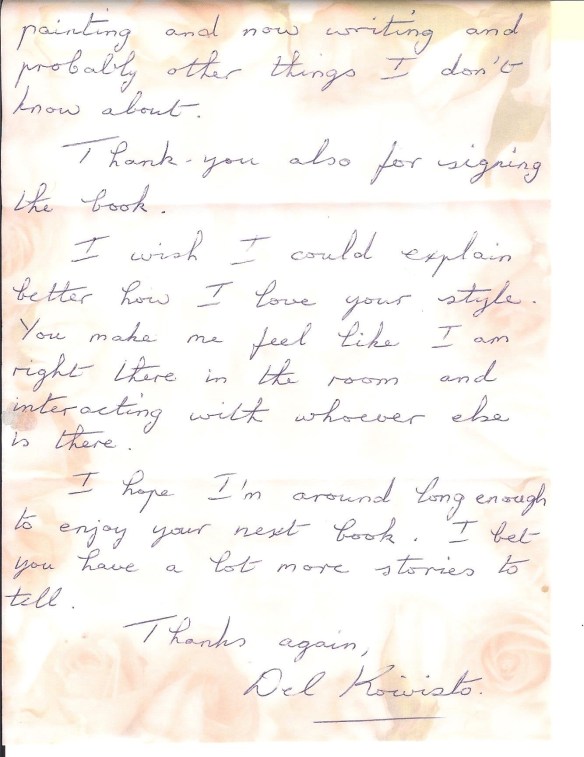 painting and now writing and
probably other things I don't
know about.
Thank-you also for signing
the book.
I wish I could explain
better how I love your style.
You make me feel like I am
right there in the room and
interacting with whoever else
is there.
I hope I'm around long enough
to enjoy your next book. I bet
you have a lot more stories to
tell.
Thanks again,
Del Koivisto.